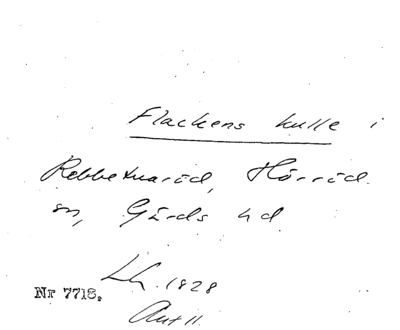 Flackens kulle i
Rebbetuaröd, Hörröd
sn, Gärds hd
Lh. 1828
Ant 11.
Nr 7718.